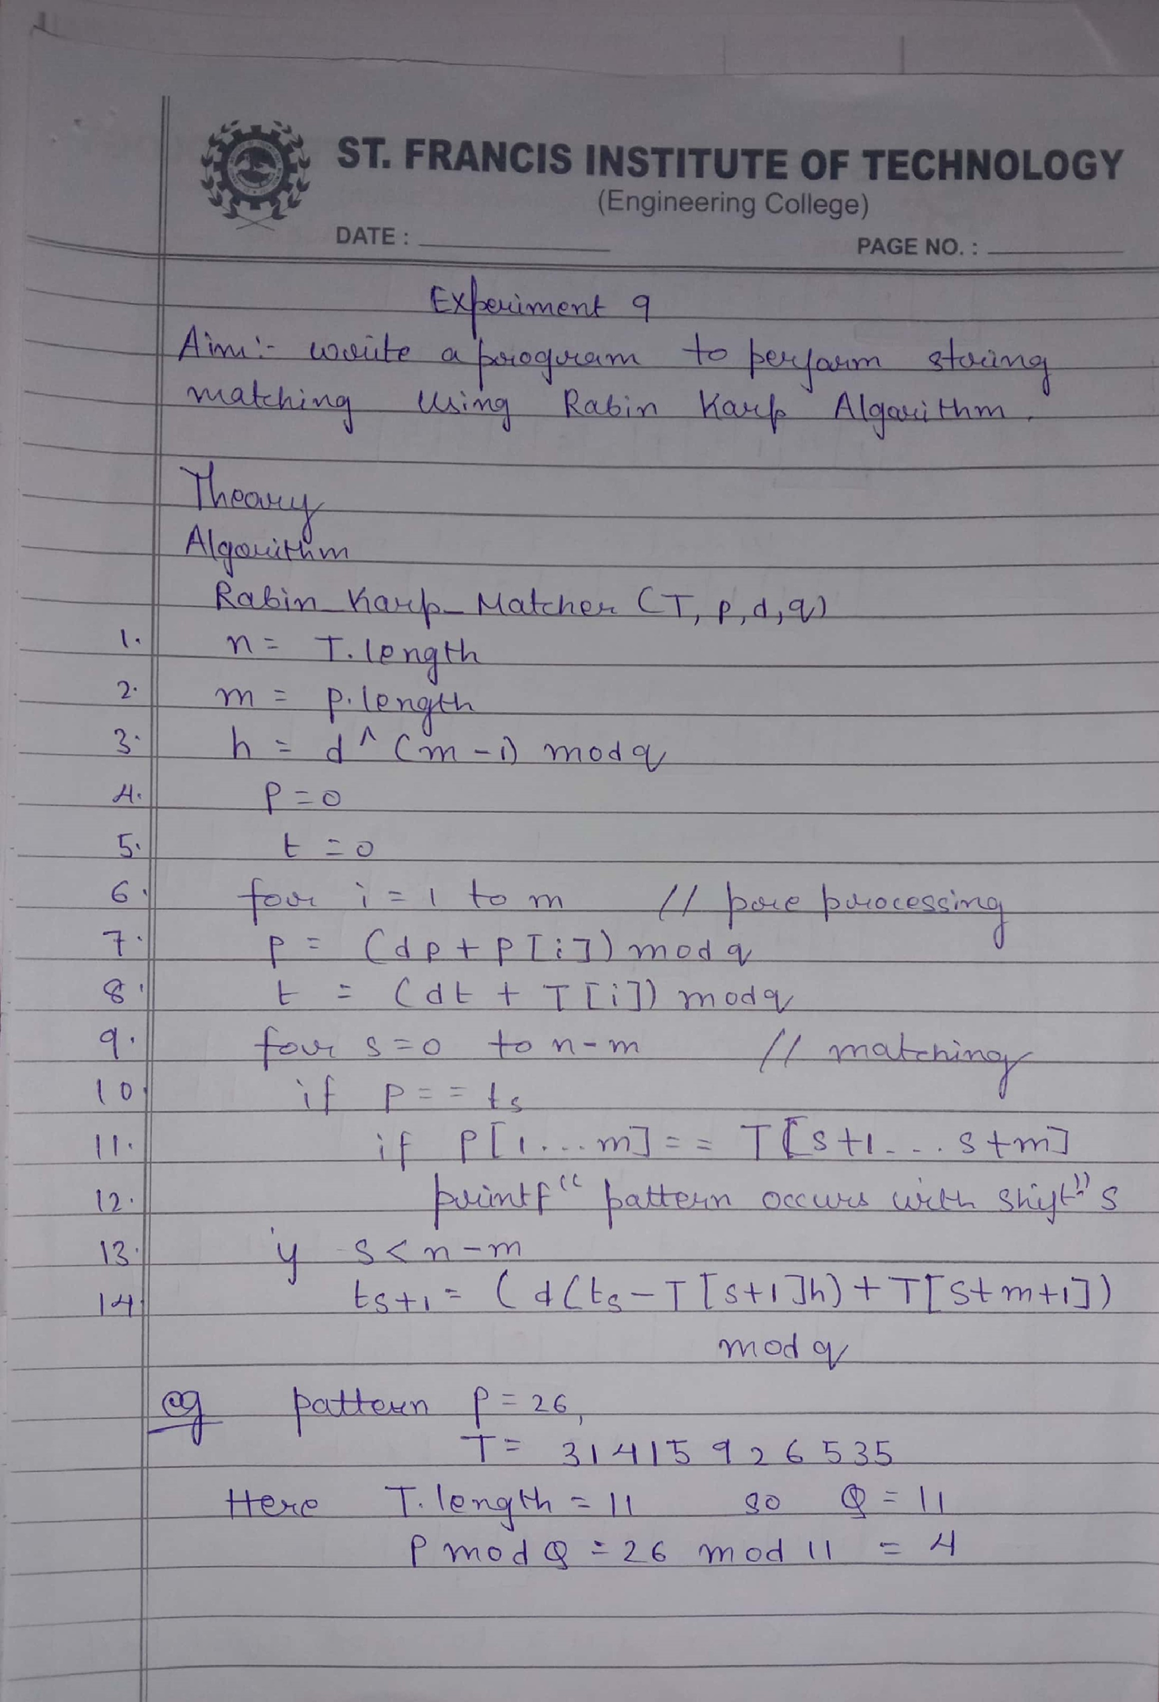 ST. FRANCIS INSTITUTE OF TECHNOLOGY
(Engineering College)
DATE :
PAGE NO. :
Experiment 9
Aim:- write a program to perform string
matching using Rabin Karp Algorithm.
Theory
Algorithm
Rabin_Karp_Matcher (T, p, d, q)
1. n = T.length
2. m = p.length
3. h = d^(m-1) mod q
4. p = 0
5. t = 0
6. for i = 1 to m // pre processing
7. p = (dp + p[i]) mod q
8. t = (dt + T[i]) mod q
9. for s = 0 to n-m // matching
10 if p == ts
11. if p[1...m] == T[s+1...s+m]
12. printf "pattern occurs with shift" s
13. if s < n-m
14 ts+1 = (d(ts - T[s+1]h) + T[s+m+1])
mod q
eg pattern p = 26,
T = 31415926535
Here T.length = 11 so Q = 11
P mod Q = 26 mod 11 = 4